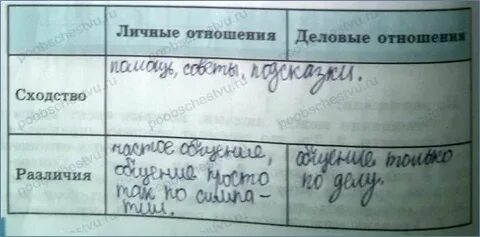 Личные отношения Деловые отношения
Сходство помощь, советы, подсказки.
Различия
частое общение,
общение просто
так по симпа-
тии.
общение только
по делу.
poobschestvu.ru